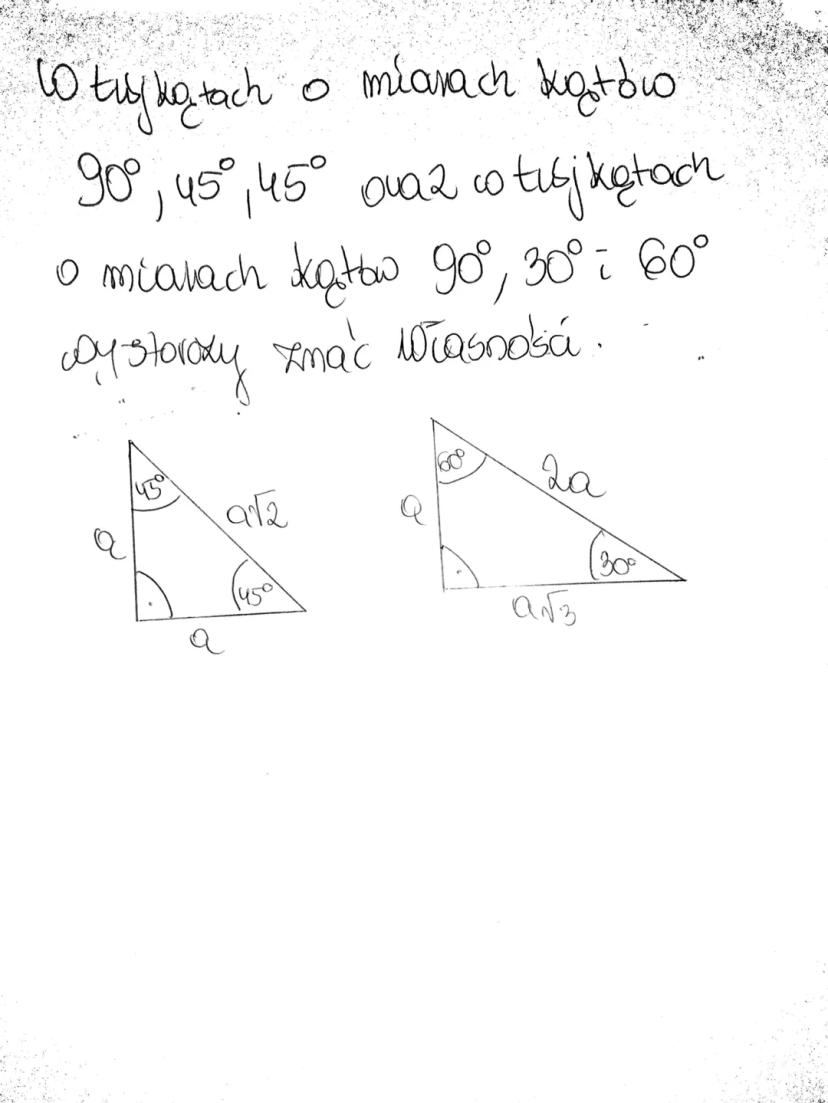 W trójkątach o miarach kątów
90°, 45°, 45° oraz w trójkątach
o miarach kątów 90°, 30° i 60°
wystarczy znać własności.
45°
a
a√2
45°
a
60°
a
2a
30°
a√3